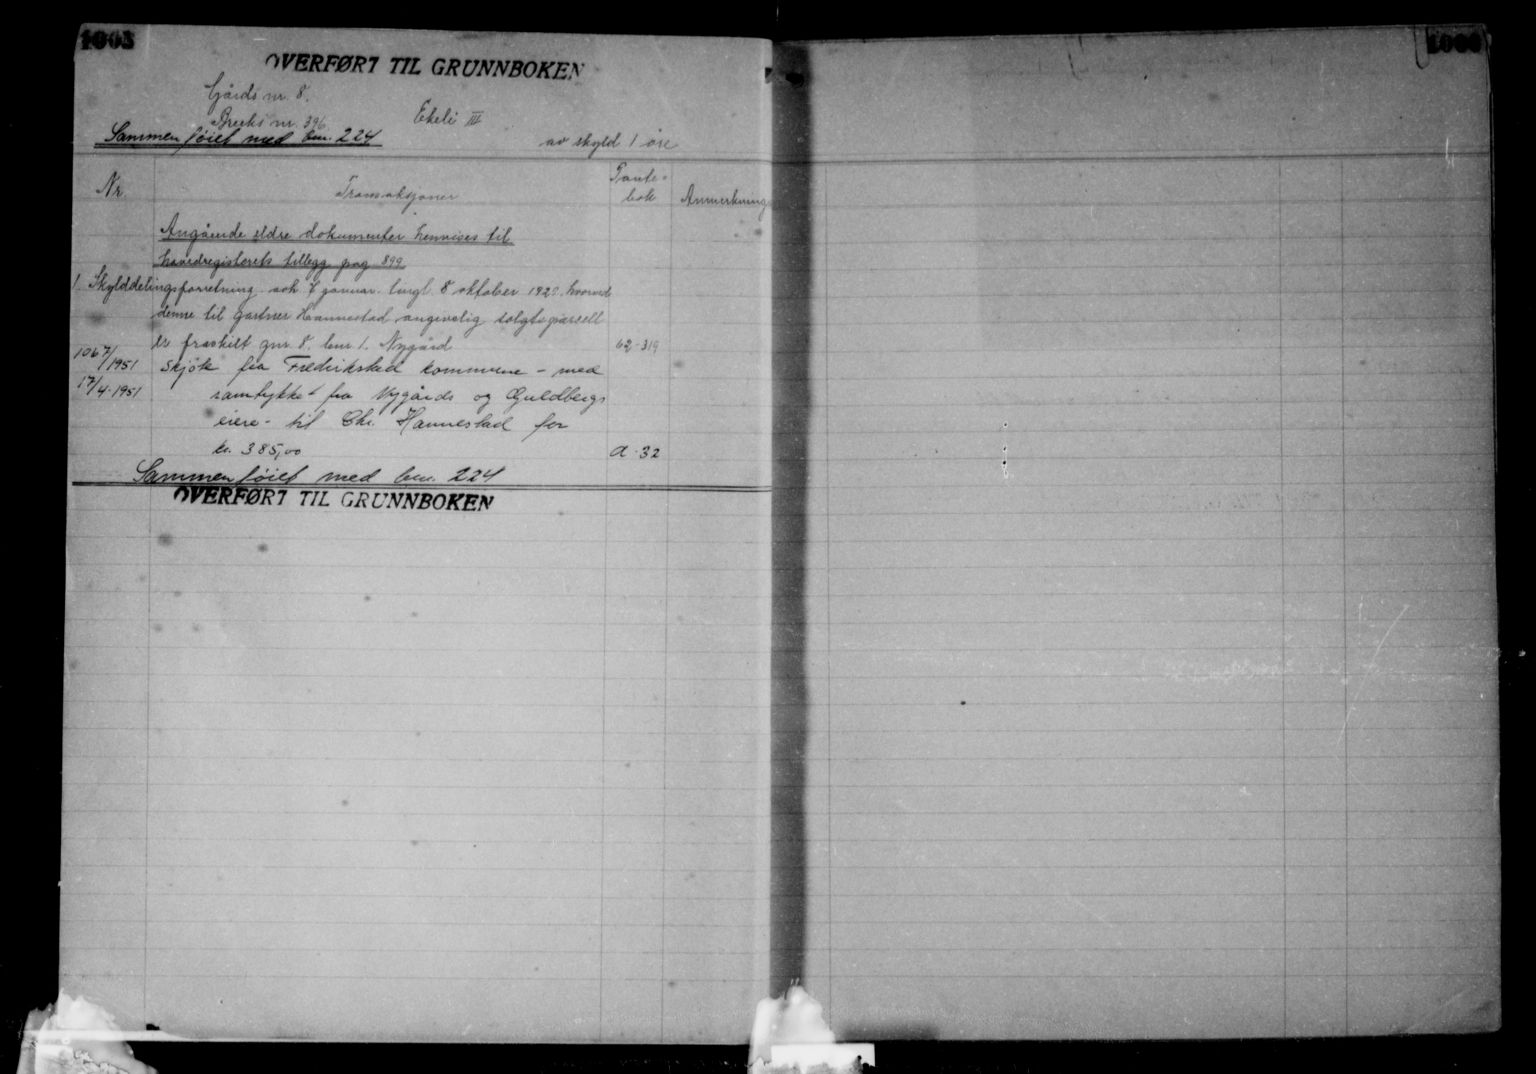 1003
OVERFØRT TIL GRUNNBOKEN
Gårds nr. 8.
Bruks nr. 396
Ekeli III
Sammenføiet med bnr. 224
av skyld 1 øre
Nr.
Transaksjoner
Pante-
bok
Anmerkning
Angående eldre dokumenter henvises til
hovedregisterets tillegg pag 899
1 Skylddelingsforretning avh 7 januar tingl. 8 oktober 1920. hvorved
denne til gartner Hannestad angivelig solgte parsell
er fraskilt gnr 8. bnr 1. Nygård
62-319
1067/1951
17/4-1951
Skjøte fra Fredrikstad kommune - med
samtykke fra Nygårds og Guldbergs
eiere - til Chr. Hannestad for
kr. 385,00
a-32
Sammenføiet med bnr. 224
OVERFØRT TIL GRUNNBOKEN